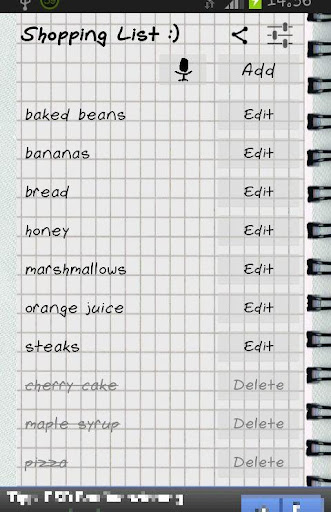 Shopping List :)
Add
baked beans Edit
bananas Edit
bread Edit
honey Edit
marshmallows Edit
orange juice Edit
steaks Edit
cherry cake Delete
maple syrup Delete
pizza Delete